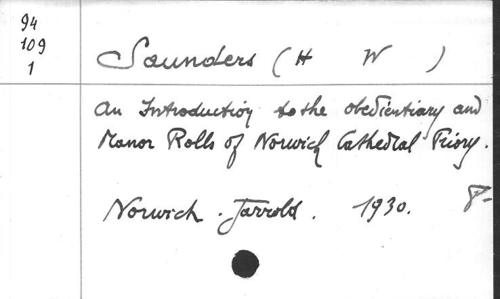 94
109
1
Saunders (H W )
An Introduction to the obedientiary and
Manor Rolls of Norwich Cathedral Priory.
Norwich. Jarrold. 1930. 8-